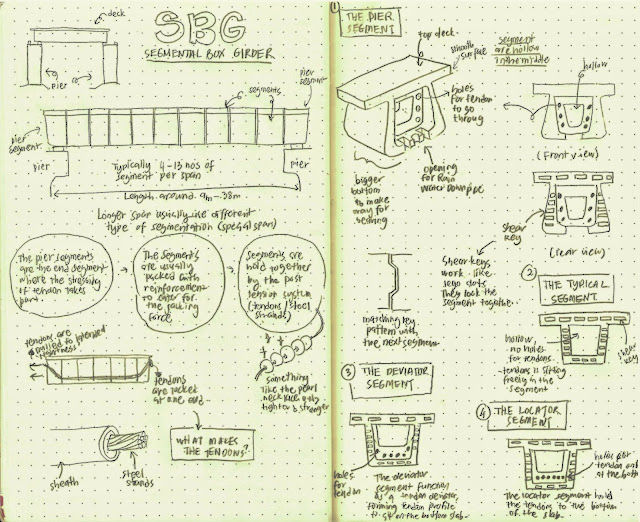 deck
SBG
SEGMENTAL BOX GIRDER
pier
segments
pier
segment
pier
segment
pier
Typically 4-13 nos of
segment per span
pier
Length around 9m-38m
Longer span usually use different
type of segmentation (special span)
The pier segments
are the end segment
where the stressing
of tendon takes
part.
The segments
are usually
packed with
reinforcement
to cater for
the jacking
force
Segments are
held together
by the post
tension system
(tendons/steel
strands)
tendons are
pulled to intended
tendons
are jacked
at one end.
something
like the pearl
necklace only
tighter & stronger
WHAT MAKES
THE TENDONS?
sheath
steel
strands
1
THE PIER
SEGMENT
top deck
smooth
surface
segment
are hollow
in the middle
holes
for tendon
to go
through
hollow
(front view)
bigger
bottom
to make
way for
opening
for Rain
Water Downpipe
shear
key
(rear view)
matching key
pattern with
the next segment
shear keys
work like
lego slots
They lock the
segment together.
2
THE TYPICAL
SEGMENT
hollow,
no holes
for tendons.
- tendons is sitting
freely in the
segment
shear
key
3
THE DEVIATOR
SEGMENT
holes
for
tendon
The deviator
segment function
as a tendon deviator,
forming tendon profile
to sit on the bottom slab.
4
THE LOCATOR
SEGMENT
holes for
tendon
at the bottom
The locator segment hold
the tendons to the bottom
of the slab.